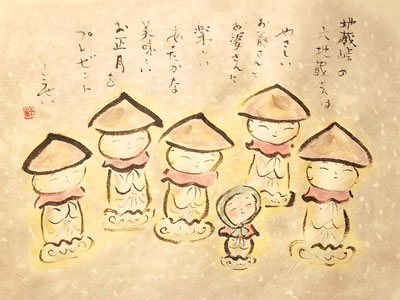 地蔵峠の
六地蔵さまは
やさしい
お爺さんと
お婆さんに
楽しい
あたたかな
美味しい
お正月を
プレゼント